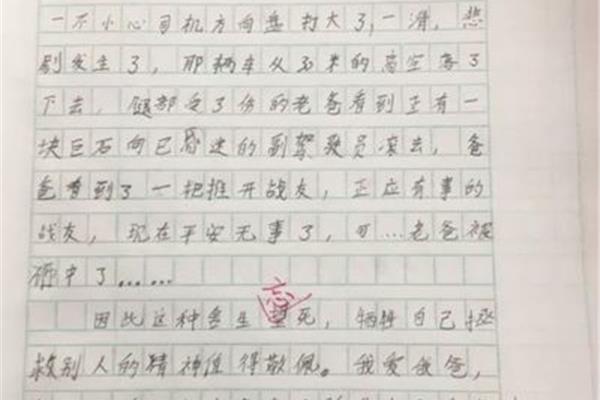 一不小心司机方向盘打大了,一滑,悲
剧发生了,那辆车从30米的高空落了
下去,腿部受了伤的老爸看到正有一
块巨石向已昏迷的副驾驶员滚去,爸
爸看到了一把推开战友,正应有事的
战友,现在平安无事了,可…老爸被
砸中了……
忘
因此这种舍生 死,牺牲自己拯
救别人的精神值得敬佩。我爱我爸,